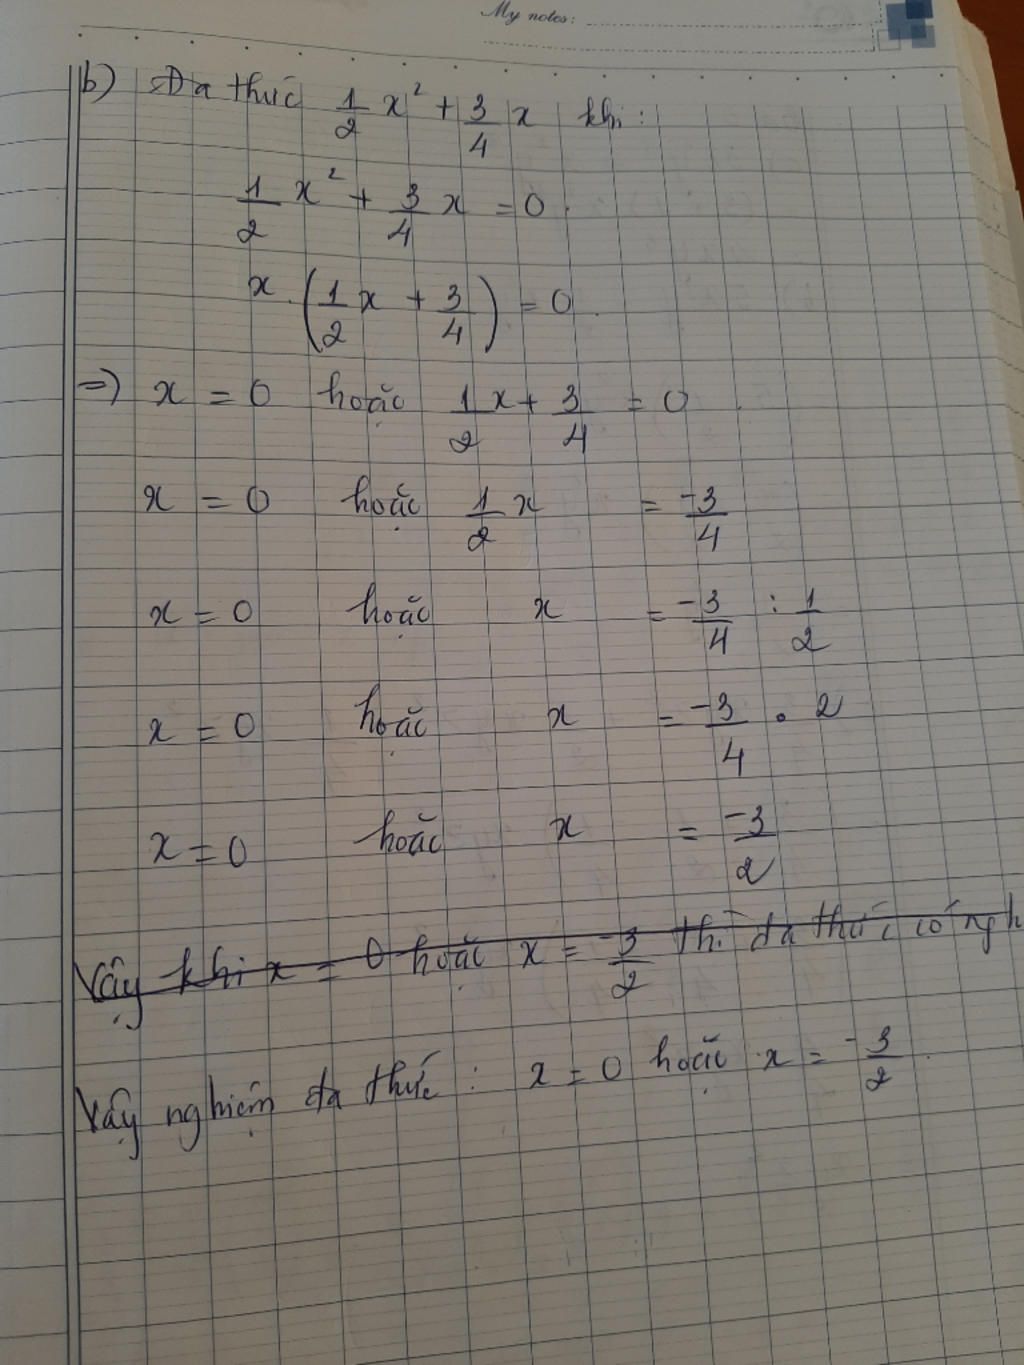 My notes:
b) Đa thức 1/2 x² + 3/4 x khi:
1/2 x² + 3/4 x = 0.
x.(1/2 x + 3/4) = 0.
=) x = 0 hoặc 1/2 x + 3/4 = 0.
x = 0 hoặc 1/2 x = -3/4
x = 0 hoặc x = -3/4 : 1/2
x = 0 hoặc x = -3/4 . 2
x = 0 hoặc x = -3/2
Vậy khi x = 0 hoặc x = -3/2 thì đa thức có ngh
Vậy nghiệm đa thức: x = 0 hoặc x = -3/2.